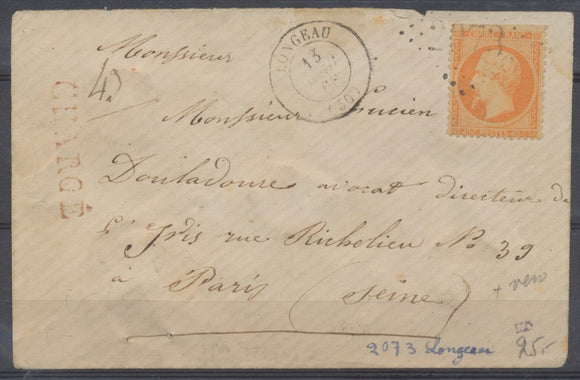 Monsieur
Monsieur Lucien
Douladoure avocat directeur de
L'Iris rue Richelieu No 39
à Paris (Seine)
CHARGÉ
LONGEAU
13
(50)
EMPIRE FRANC
40 C POSTES 40 C
+ verso
2073 Longeau
25.-